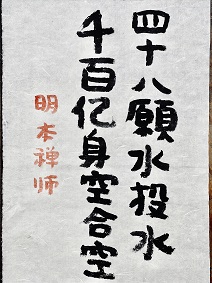 四十八願水投水
千百亿身空合空
明本禅师